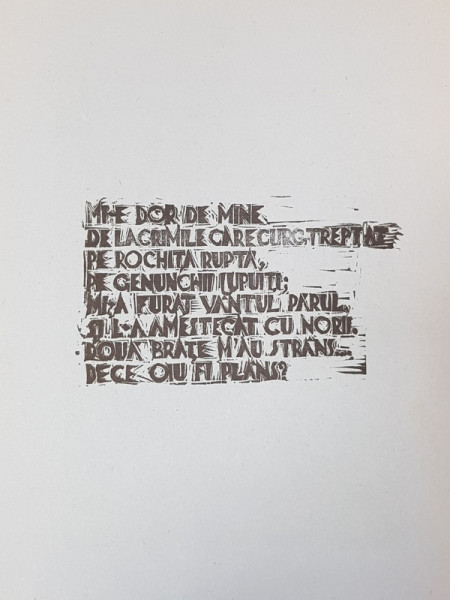 MI-E DOR DE MINE,
DE LACRIMILE CARE CURG TREPTAT
PE ROCHIȚA RUPTĂ,
PE GENUNCHII JUPUIȚI;
MI-A FURAT VÂNTUL PĂRUL,
ȘI L-A AMESTECAT CU NORII.
DOUĂ BRAȚE M'AU STRÂNS...
DECE OIU FI PLÂNS?